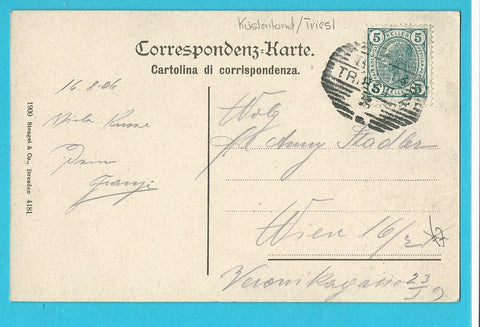 Küstenland/Triest
Correspondenz-Karte.
Cartolina di corrispondenza.
5 5
5 5
HELLER HELLER
TRI
16.8.06
Viele Küsse
Dein
Franzi
Wolg
Frl Anny Stadler
Wien 16/2
Veronikagasse 23
1900 Stengel & Co., Dresden 4181